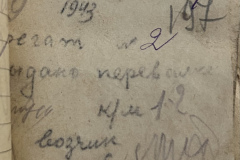 1943 197
регат № 2
ыдано перевал
к/м 1-2
возчик